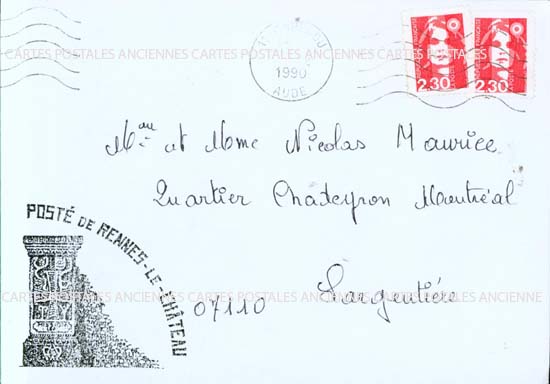 1990
AUDE
RÉPUBLIQUE FRANÇAISE
2,30
2,30
CARTES POSTALES ANCIENNES CARTES POSTALES ANCIENNES CARTES POSTALES ANCIENNE
et Mme Nicolas Maurice
Quartier Chateyron Montréal
POSTÉ DE RENNES-LE-CHÂTEAU
CARTES POSTALES ANCIENNES CARTES POSTALES ANCIENNES CARTES POSTALES ANCIENNE
07110 Largentière